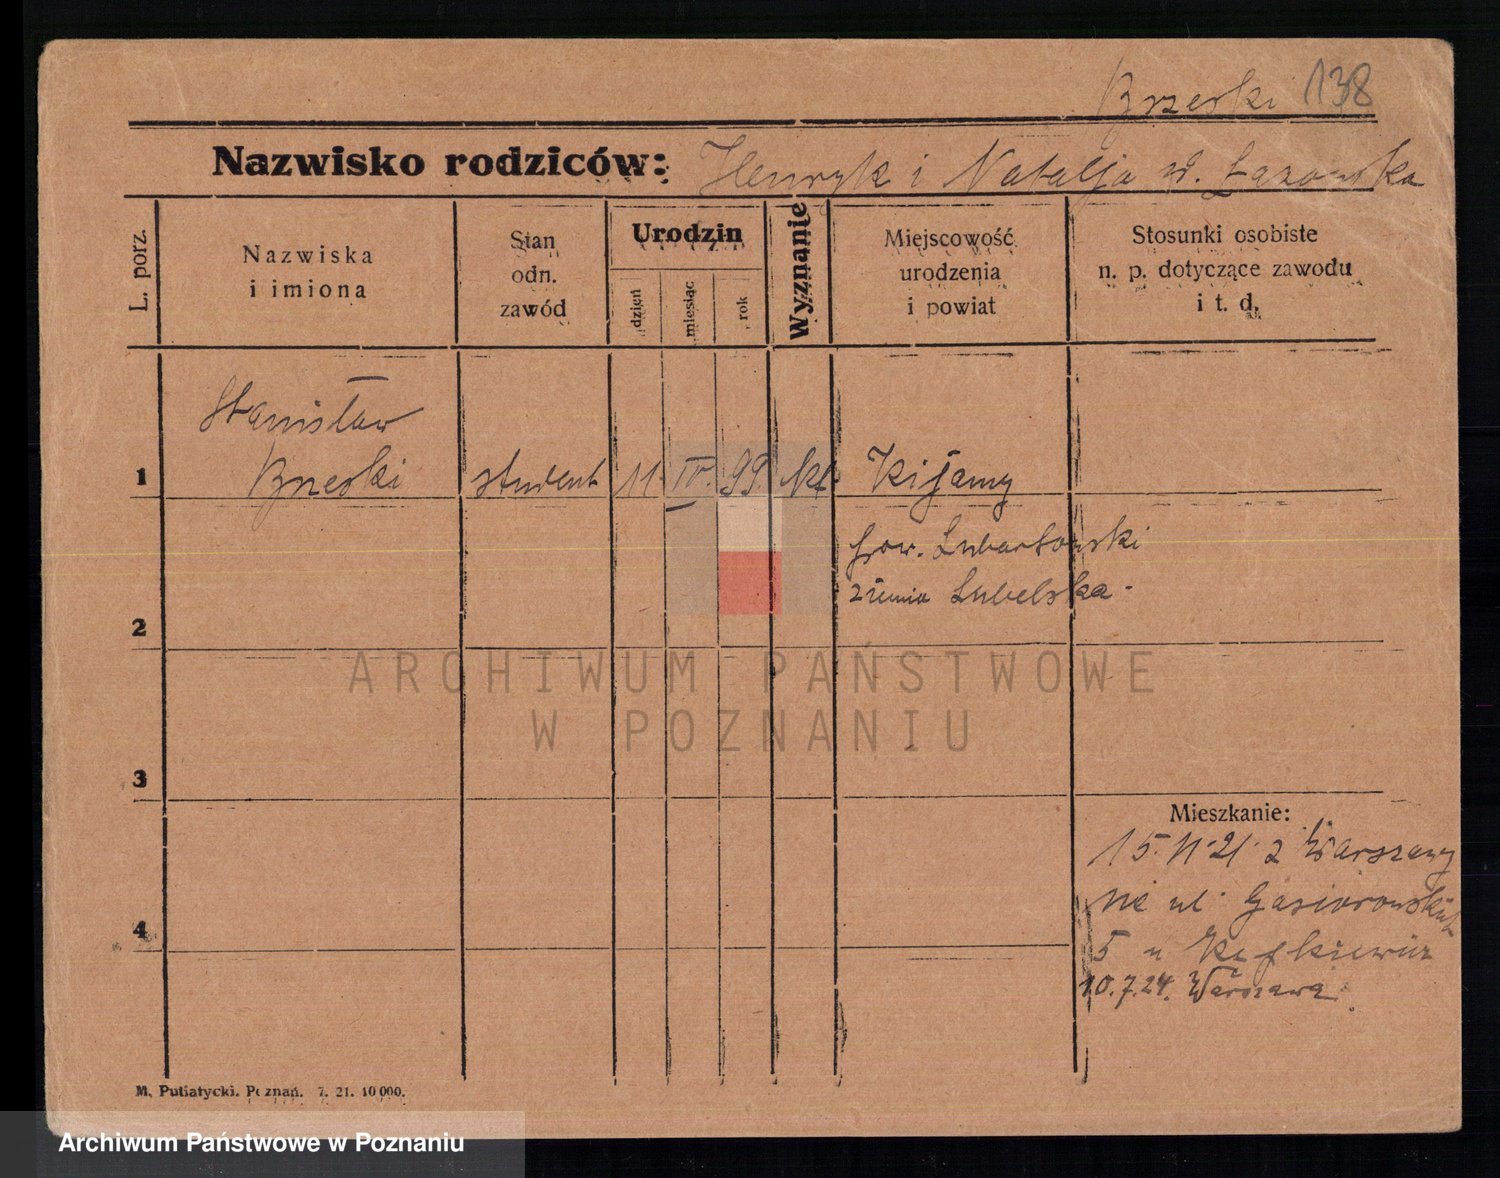 Brzeski 138
Nazwisko rodziców: Henryk i Natalja
L. porz.
Nazwiska
i imiona
Stan
odn.
zawód
Urodzin
dzień
miesiąc
rok
Wyznanie
Miejscowość
urodzenia
i powiat
Stosunki osobiste
n. p. dotyczące zawodu
i t. d.
Stanisław
1 Brzeski student 11 IV. 99 kt. Kijany
pow. Lubartowski
ziemia Lubelska -
2
ARCHIWUM PAŃSTWOWE
W POZNANIU
3
Mieszkanie:
z Warszawy
ul. Gąsiorowskich
4
5 u
10.7.24. Warszawa.
M. Putiatycki. Poznań. 7. 21. 10 000.
Archiwum Państwowe w Poznaniu